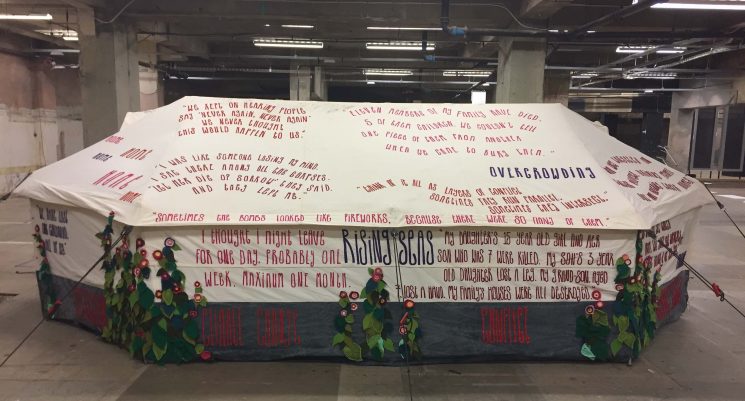 "WE KEPT ON HEARING PEOPLE
SAY 'NEVER AGAIN, NEVER AGAIN'
WE NEVER THOUGHT
THIS WOULD HAPPEN TO US."
ELEVEN MEMBERS OF MY FAMILY HAVE DIED.
5 OF THEM CHILDREN. WE COULDN'T TELL
ONE PIECE OF THEM FROM ANOTHER
WHEN WE CAME TO BURY THEM."
OVERCROWDING
MORE
MORE
MORE
MORE
"I WAS LIKE SOMEONE LOSING MY MIND.
I SAT THERE AMONG ALL THE CORPSES.
'LET HER DIE OF SORROW' THEY SAID,
AND THEY LEFT ME."
OF IT ALL AS LAYERS OF CONFLICT
SOMETIMES THEY RUN PARALLEL,
SOMETIMES THEY INTERSECT."
"SOMETIMES THE BOMBS LOOKED LIKE FIREWORKS, BECAUSE THERE WERE SO MANY OF THEM."
I THOUGHT I MIGHT LEAVE
FOR ONE DAY. PROBABLY ONE
WEEK. MAXIMUM ONE MONTH.
RISING SEAS
"MY DAUGHTER'S 15 YEAR OLD GIRL AND HER
SON WHO WAS 7 WERE KILLED. MY SON'S 3 YEAR
OLD DAUGHTER LOST A LEG. MY GRAND-SON AGED
7 LOST A HAND. MY FAMILY'S HOUSES WERE ALL DESTROYED.
CLIMATE CHANGE